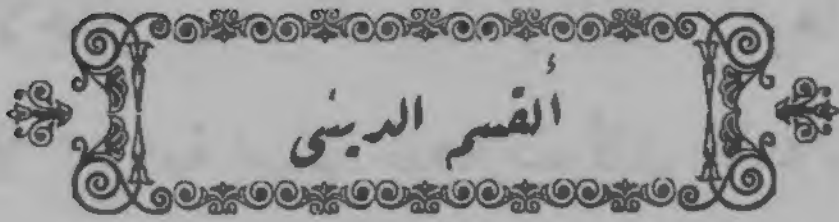 ألقسم الدينى